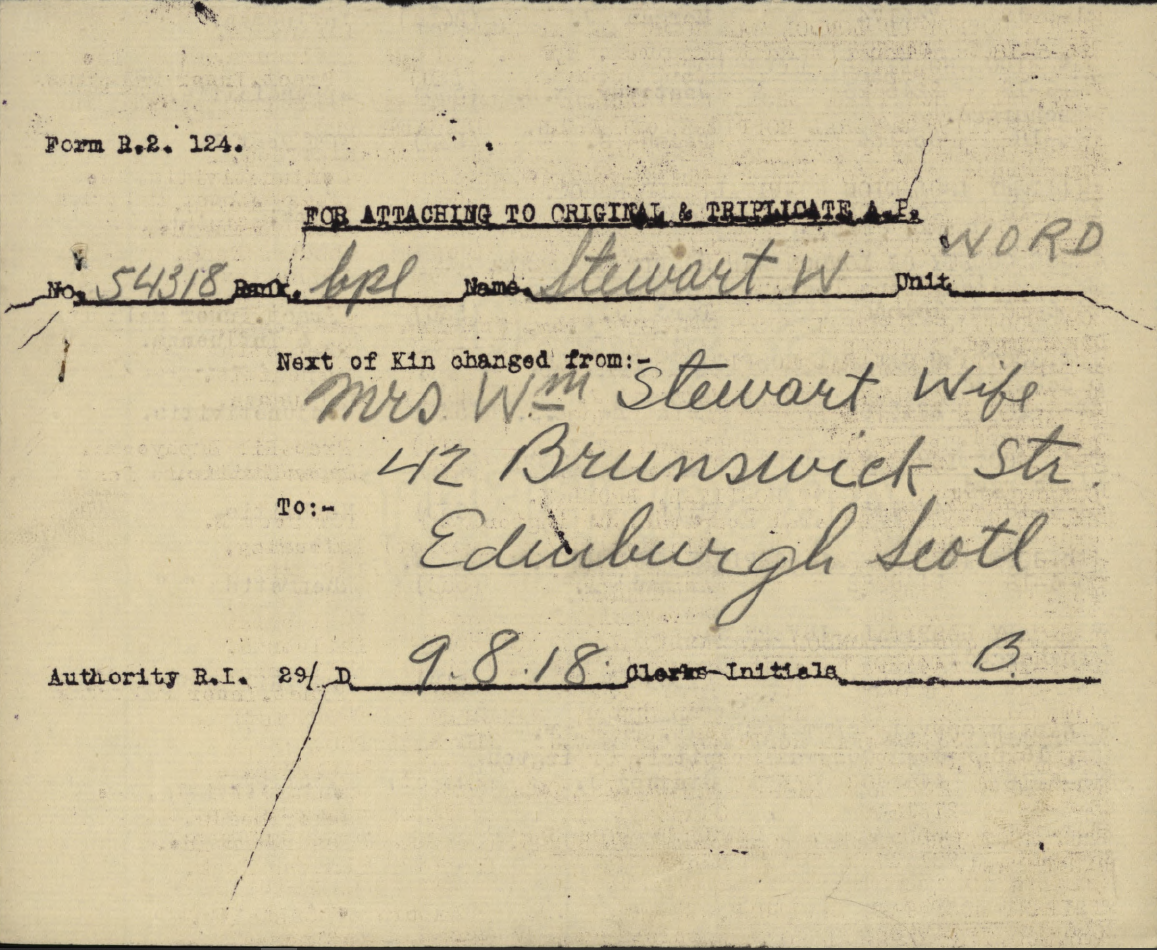 Form R.2. 124.
FOR ATTACHING TO ORIGINAL & TRIPLICATE A.P.
No. 54318 Rank. Cpl Name. Stewart W Unit WORD
Next of Kin changed from:-
Mrs Wm Stewart Wife
42 Brunswick Str.
To:-
Edinburgh Scotl
Authority R.I. 29/ D 9.8.18. Clerks Initials B